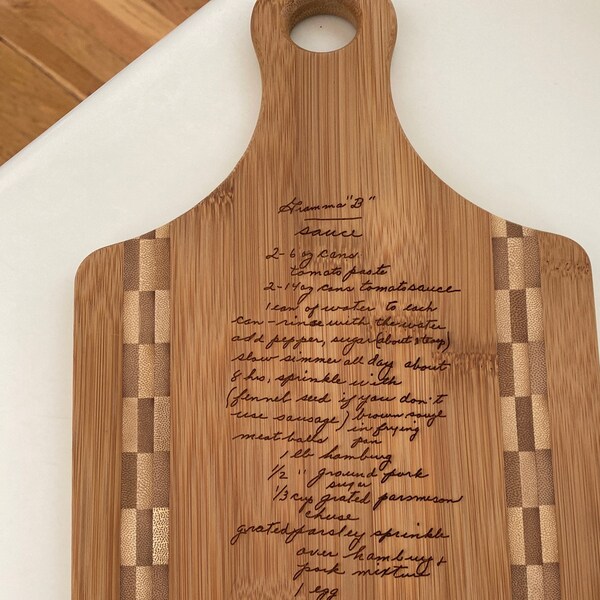 Gramma "B"
sauce
2-6 oz cans
tomato paste
2-14 oz cans tomato sauce
1 can of water to each
can - rinse with the water
add pepper, sugar (about 8 tsp)
slow simmer all day about
8 hrs, sprinkle with
(fennel seed if you don't
use sausage) brown saug
in frying
meat balls pan
1 lb hamburg
1/2 " ground pork
sugar
1/3 cup grated parmeson
cheese
grated parsley sprinkle
over hamburg +
pork mixture
1 egg